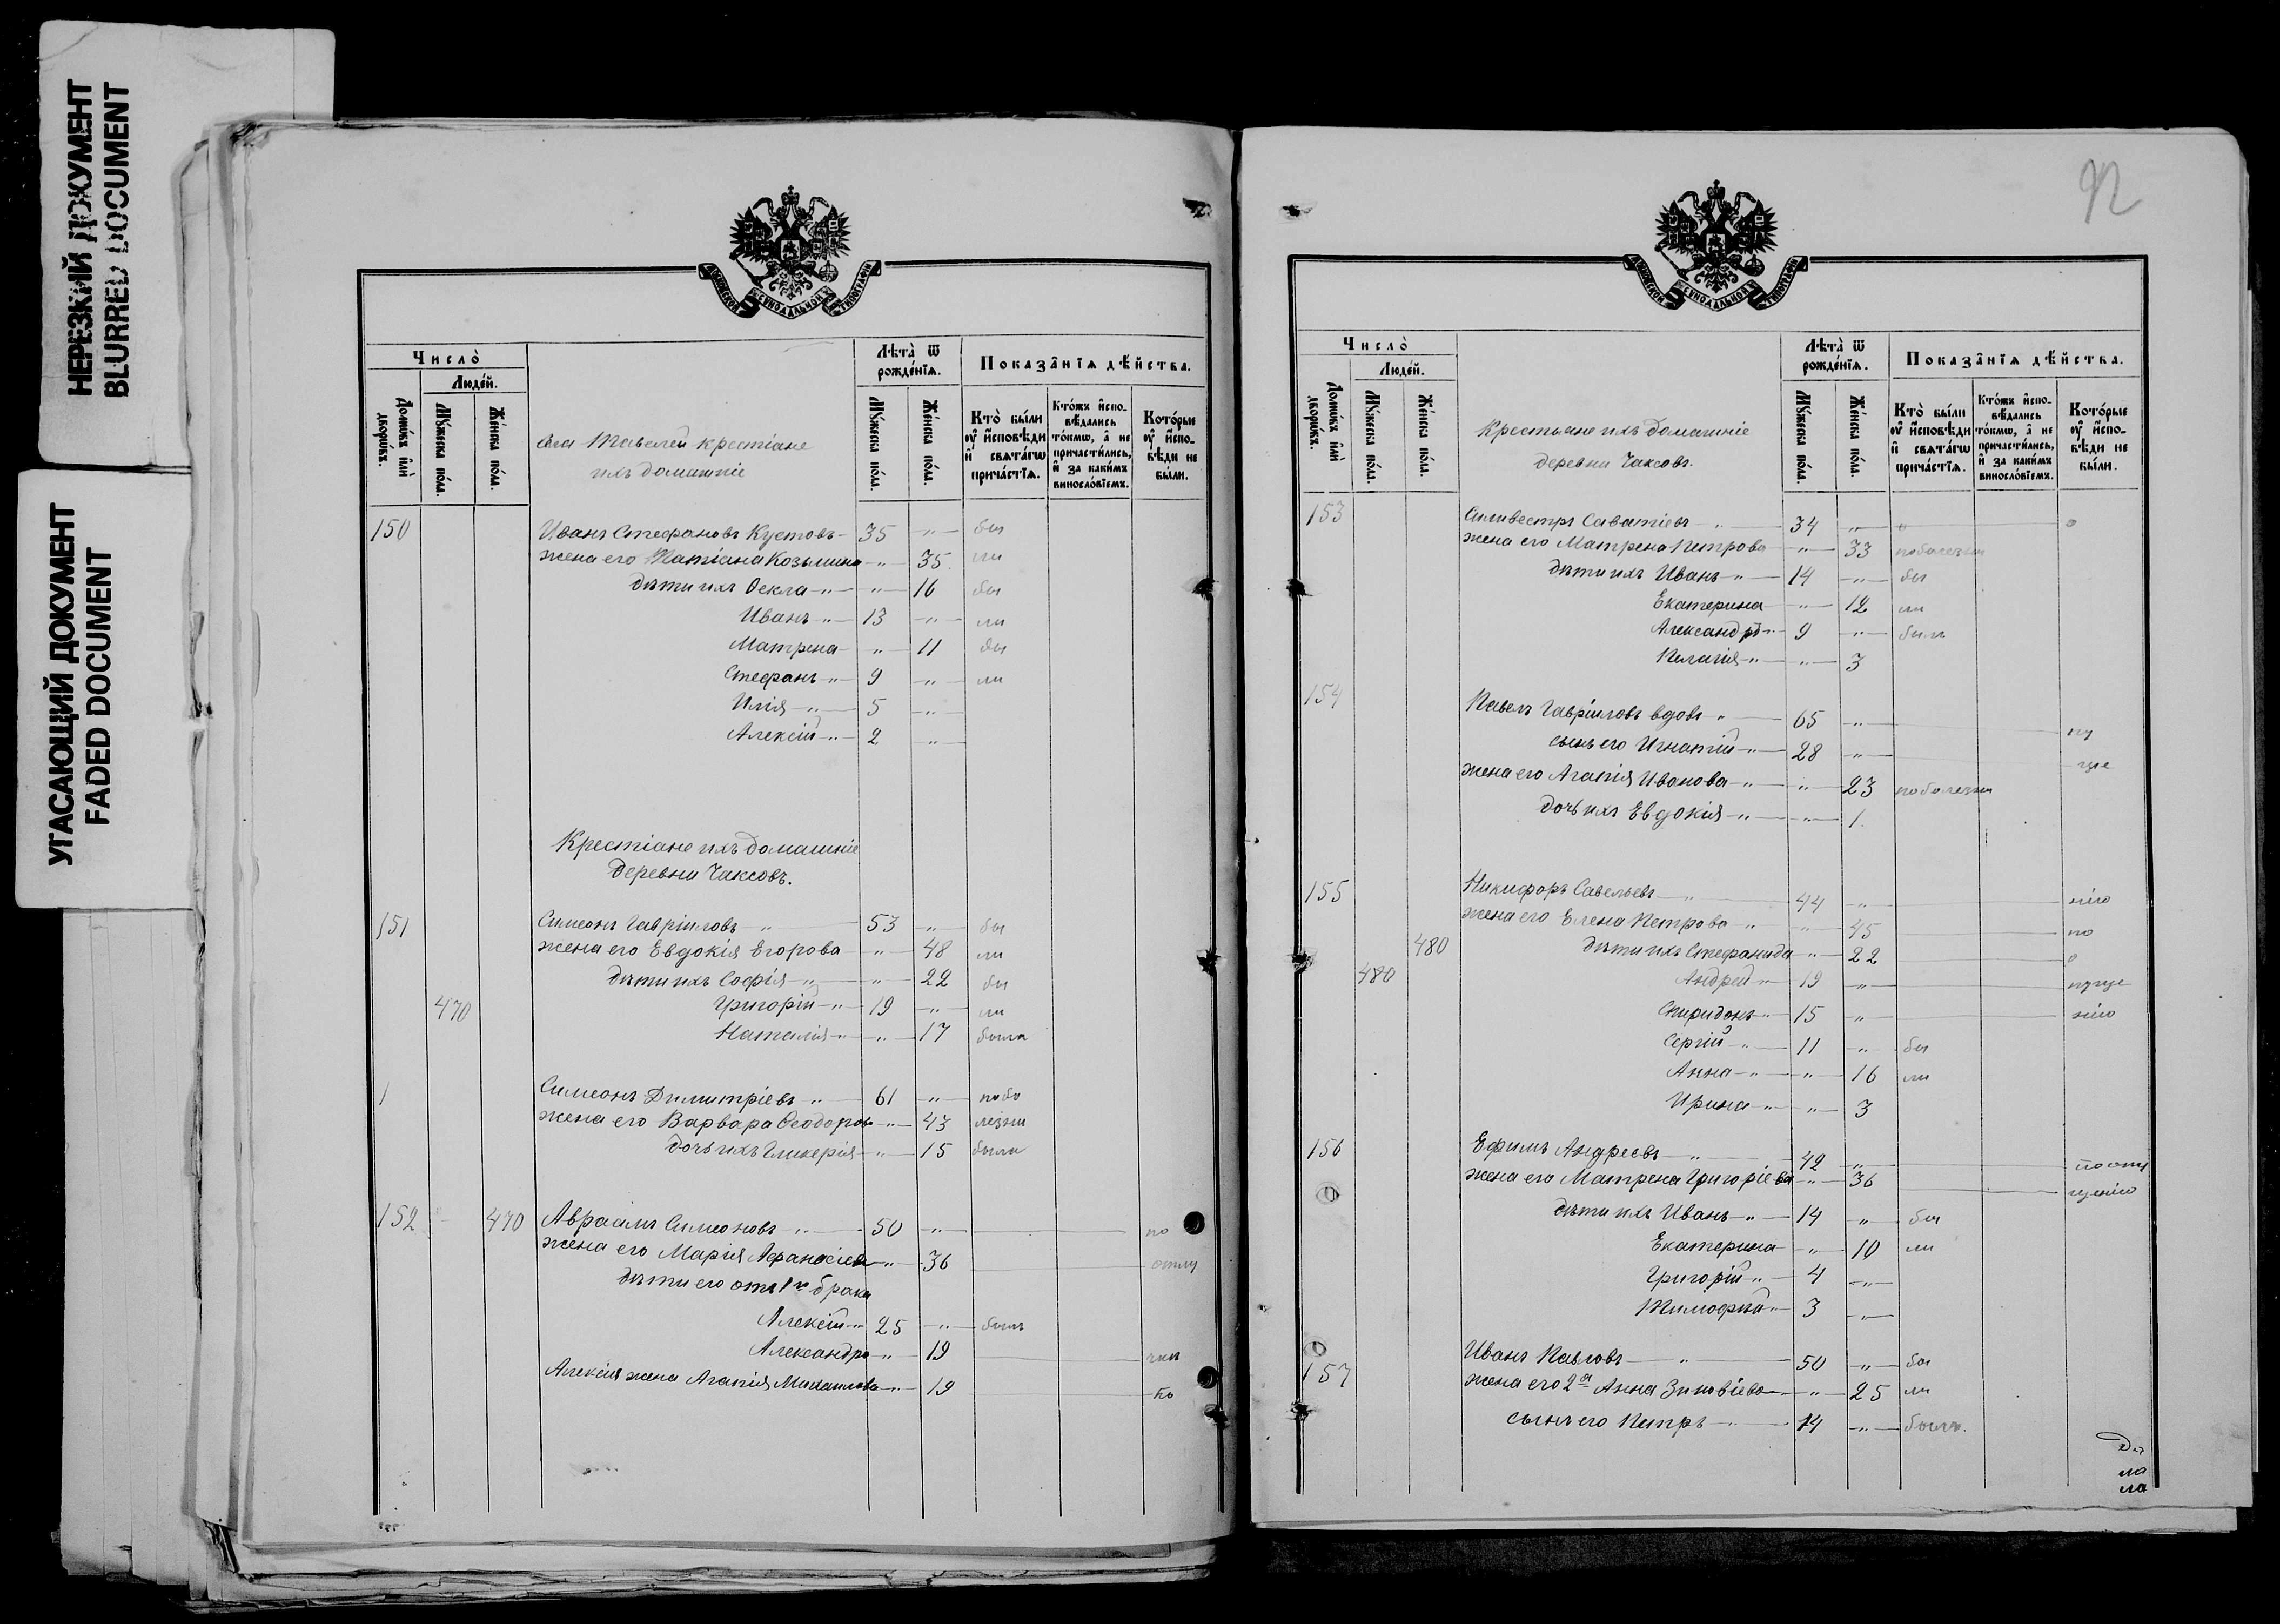 НЕРЕЗКИЙ ДОКУМЕНТ
BLURRED DOCUMENT
УГАСАЮЩИЙ ДОКУМЕНТ
FADED DOCUMENT
МОСКОВСКОЙ СУНОДАЛЬНОЙ ТИПОГРАФІИ
Число̀
Людéй.
Домо́въ и҆лѝ дворо́въ.
Мꙋ́жеска по́ла.
Же́нска по́ла.
крестіане
ихъ домашніе
Лѣта̀ ѿ рожде́нїѧ.
Мꙋ́жеска по́ла.
Же́нска по́ла.
Показа̑нїѧ дѣ́йства.
Кто̀ бы́ли оу҆ и҆сповѣди и҆ свѧта́гѡ прича́стїѧ.
Кто́жъ и҆спо-вѣдались то́кмѡ, а҆ не причасти́лись, и҆ за каки́мъ винословїемъ.
Кото́рые оу҆ и҆спо-вѣди не бы́ли.
150 Иванъ Стефановъ Кустовъ 35 " бы
жена его Татіана Козьмина " 35 ли
дѣти ихъ Ѳекла " " 16 бы
Иванъ " 13 " ли
Матрена " 11 бы
Стефанъ " 9 " ли
Илія " 5 "
Алексій " 2 "
Крестіане ихъ домашніе
деревни Чаксовъ.
151 Симеонъ Гавріиловъ " 53 " бы
жена его Евдокія Егорова " 48 ли
дѣти ихъ Софія " " 22 бы
470 Григорій " 19 " ли
Наталія " " 17 была
1 Симеонъ Димитріевъ " 61 " побо
жена его Варвара Ѳеодорова " 43 лезни
дочь ихъ Гликерія " 15 была
152 470 Авраамъ Симеоновъ " 50 " по
жена его Марія Аѳанасіева " 36 отлу
дѣти его отъ 1го брака
Алексій " 25 " былъ
Александра " 19 чки
Алексія жена Агапія Михаилова " 19 по
92
МОСКОВСКОЙ СУНОДАЛЬНОЙ ТИПОГРАФІИ
Число̀
Людéй.
Домо́въ и҆лѝ дворо́въ.
Мꙋ́жеска по́ла.
Же́нска по́ла.
Крестьяне ихъ домашніе
деревни Чаксовъ.
Лѣта̀ ѿ рожде́нїѧ.
Мꙋ́жеска по́ла.
Же́нска по́ла.
Показа̑нїѧ дѣ́йства.
Кто̀ бы́ли оу҆ и҆сповѣди и҆ свѧта́гѡ прича́стїѧ.
Кто́жъ и҆спо-вѣдались то́кмѡ, а҆ не причасти́лись, и҆ за каки́мъ винословїемъ.
Кото́рые оу҆ и҆спо-вѣди не бы́ли.
153 Силивестръ Саватіевъ " 34 " о о
жена его Матрена Петрова " 33 поболезни
дѣти ихъ Иванъ " 14 " бы
Екатерина " 12 ли
Александръ " 9 " былъ
Пелагія " " 3
154 Павелъ Гавріиловъ вдовъ " 65 "
сынъ его Игнатій " 28 "
жена его Агапія Иванова " " 23 поболезни
дочь ихъ Евдокія " " 1.
155 Никифоръ Савельевъ " 44 " нію
жена его Елена Петрова " " 45 по
480 дѣти ихъ Стефанида " 22 о
480 Андрей " 19 " пуще
Спиридонъ " 15 " нію
Сергій " 11 " бы
Анна " " 16 ли
Ирина " " 3
156 Ефимъ Андреевъ " 42 " по отпу
жена его Матрена Григоріева " 36 щенію
дѣти ихъ Иванъ " 14 " бы
Екатерина " 10 ли
Григорій " 4 "
Тимоѳей " 3 "
157 Иванъ Павловъ " 50 " бы
жена его 2я Анна Зиновіева " 25 ли
сынъ его Петръ " 14 " былъ.